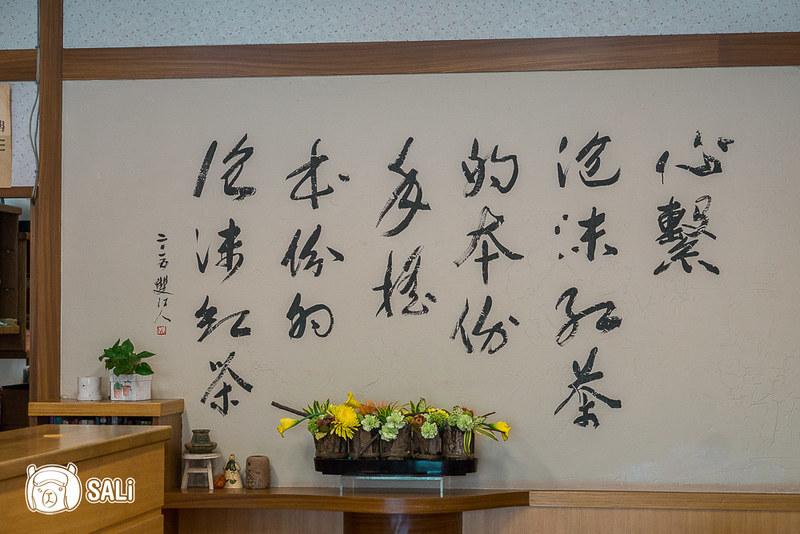 心繫
泡沫紅茶
的本份
手搖
本份的
泡沫紅茶
二〇一五 雙江人
SALi